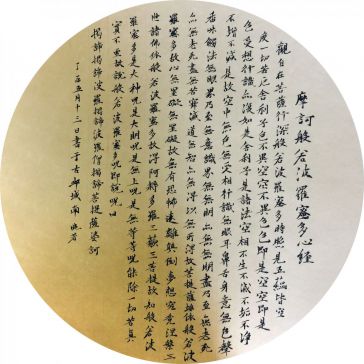 摩訶般若波羅蜜多心經
觀自在菩薩行深般若波羅蜜多時照見五蘊皆空
度一切苦厄舍利子色不異空空不異色色即是空空即是
色受想行識亦復如是舍利子是諸法空相不生不滅不垢不淨
不增不減是故空中無色無受想行識無眼耳鼻舌身意無色聲
香味觸法無眼界乃至無意識界無無明亦無無明盡乃至無老死
亦無老死盡無苦集滅道無智亦無得以無所得故菩提薩埵依般若波
羅蜜多故心無罣礙無罣礙故無有恐怖遠離顛倒夢想究竟涅槃三
世諸佛依般若波羅蜜多故得阿耨多羅三藐三菩提故知般若波
羅蜜多是大神咒是大明咒是無上咒是無等等咒能除一切苦真
實不虛故說般若波羅蜜多咒即說咒曰
揭諦揭諦波羅揭諦波羅僧揭諦菩提薩婆訶
丁酉五月十三日書于古都城南